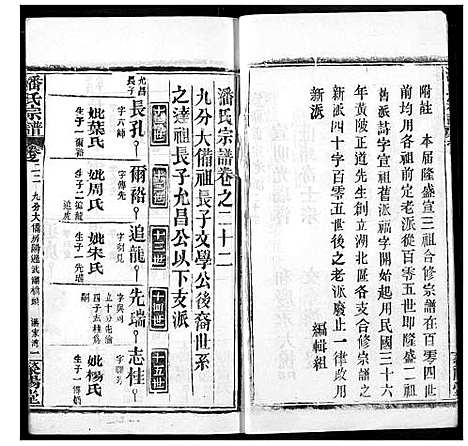 附註 本屆隆盛宣三祖合修宗譜在百零四世
前均用各祖前定老派從百零五世即隆盛二祖
舊派詩字宣祖舊派福字開始起用民國三十六
年黃陂正道先生創立湖北區各支合修宗譜之
新派四十字百零五世後之老派廢止一律改用
新派
編輯組
潘氏宗譜卷之二十二
九分大備祖長子文學公後裔世系
之達祖長子允昌公以下支派
十一世
十二世
十三世
十四世
十五世
允昌長子
長孔
字六帥
妣葉氏
生子一爾裕
爾裕
字傳先
妣周氏
生子二追龍
追虎
追龍
妣朱氏
生子一先瑞
先瑞
立十分允倫
四子玄柱為嗣
志桂
妣楊氏
潘氏宗譜
卷之二二
九分大備房
潘家灣